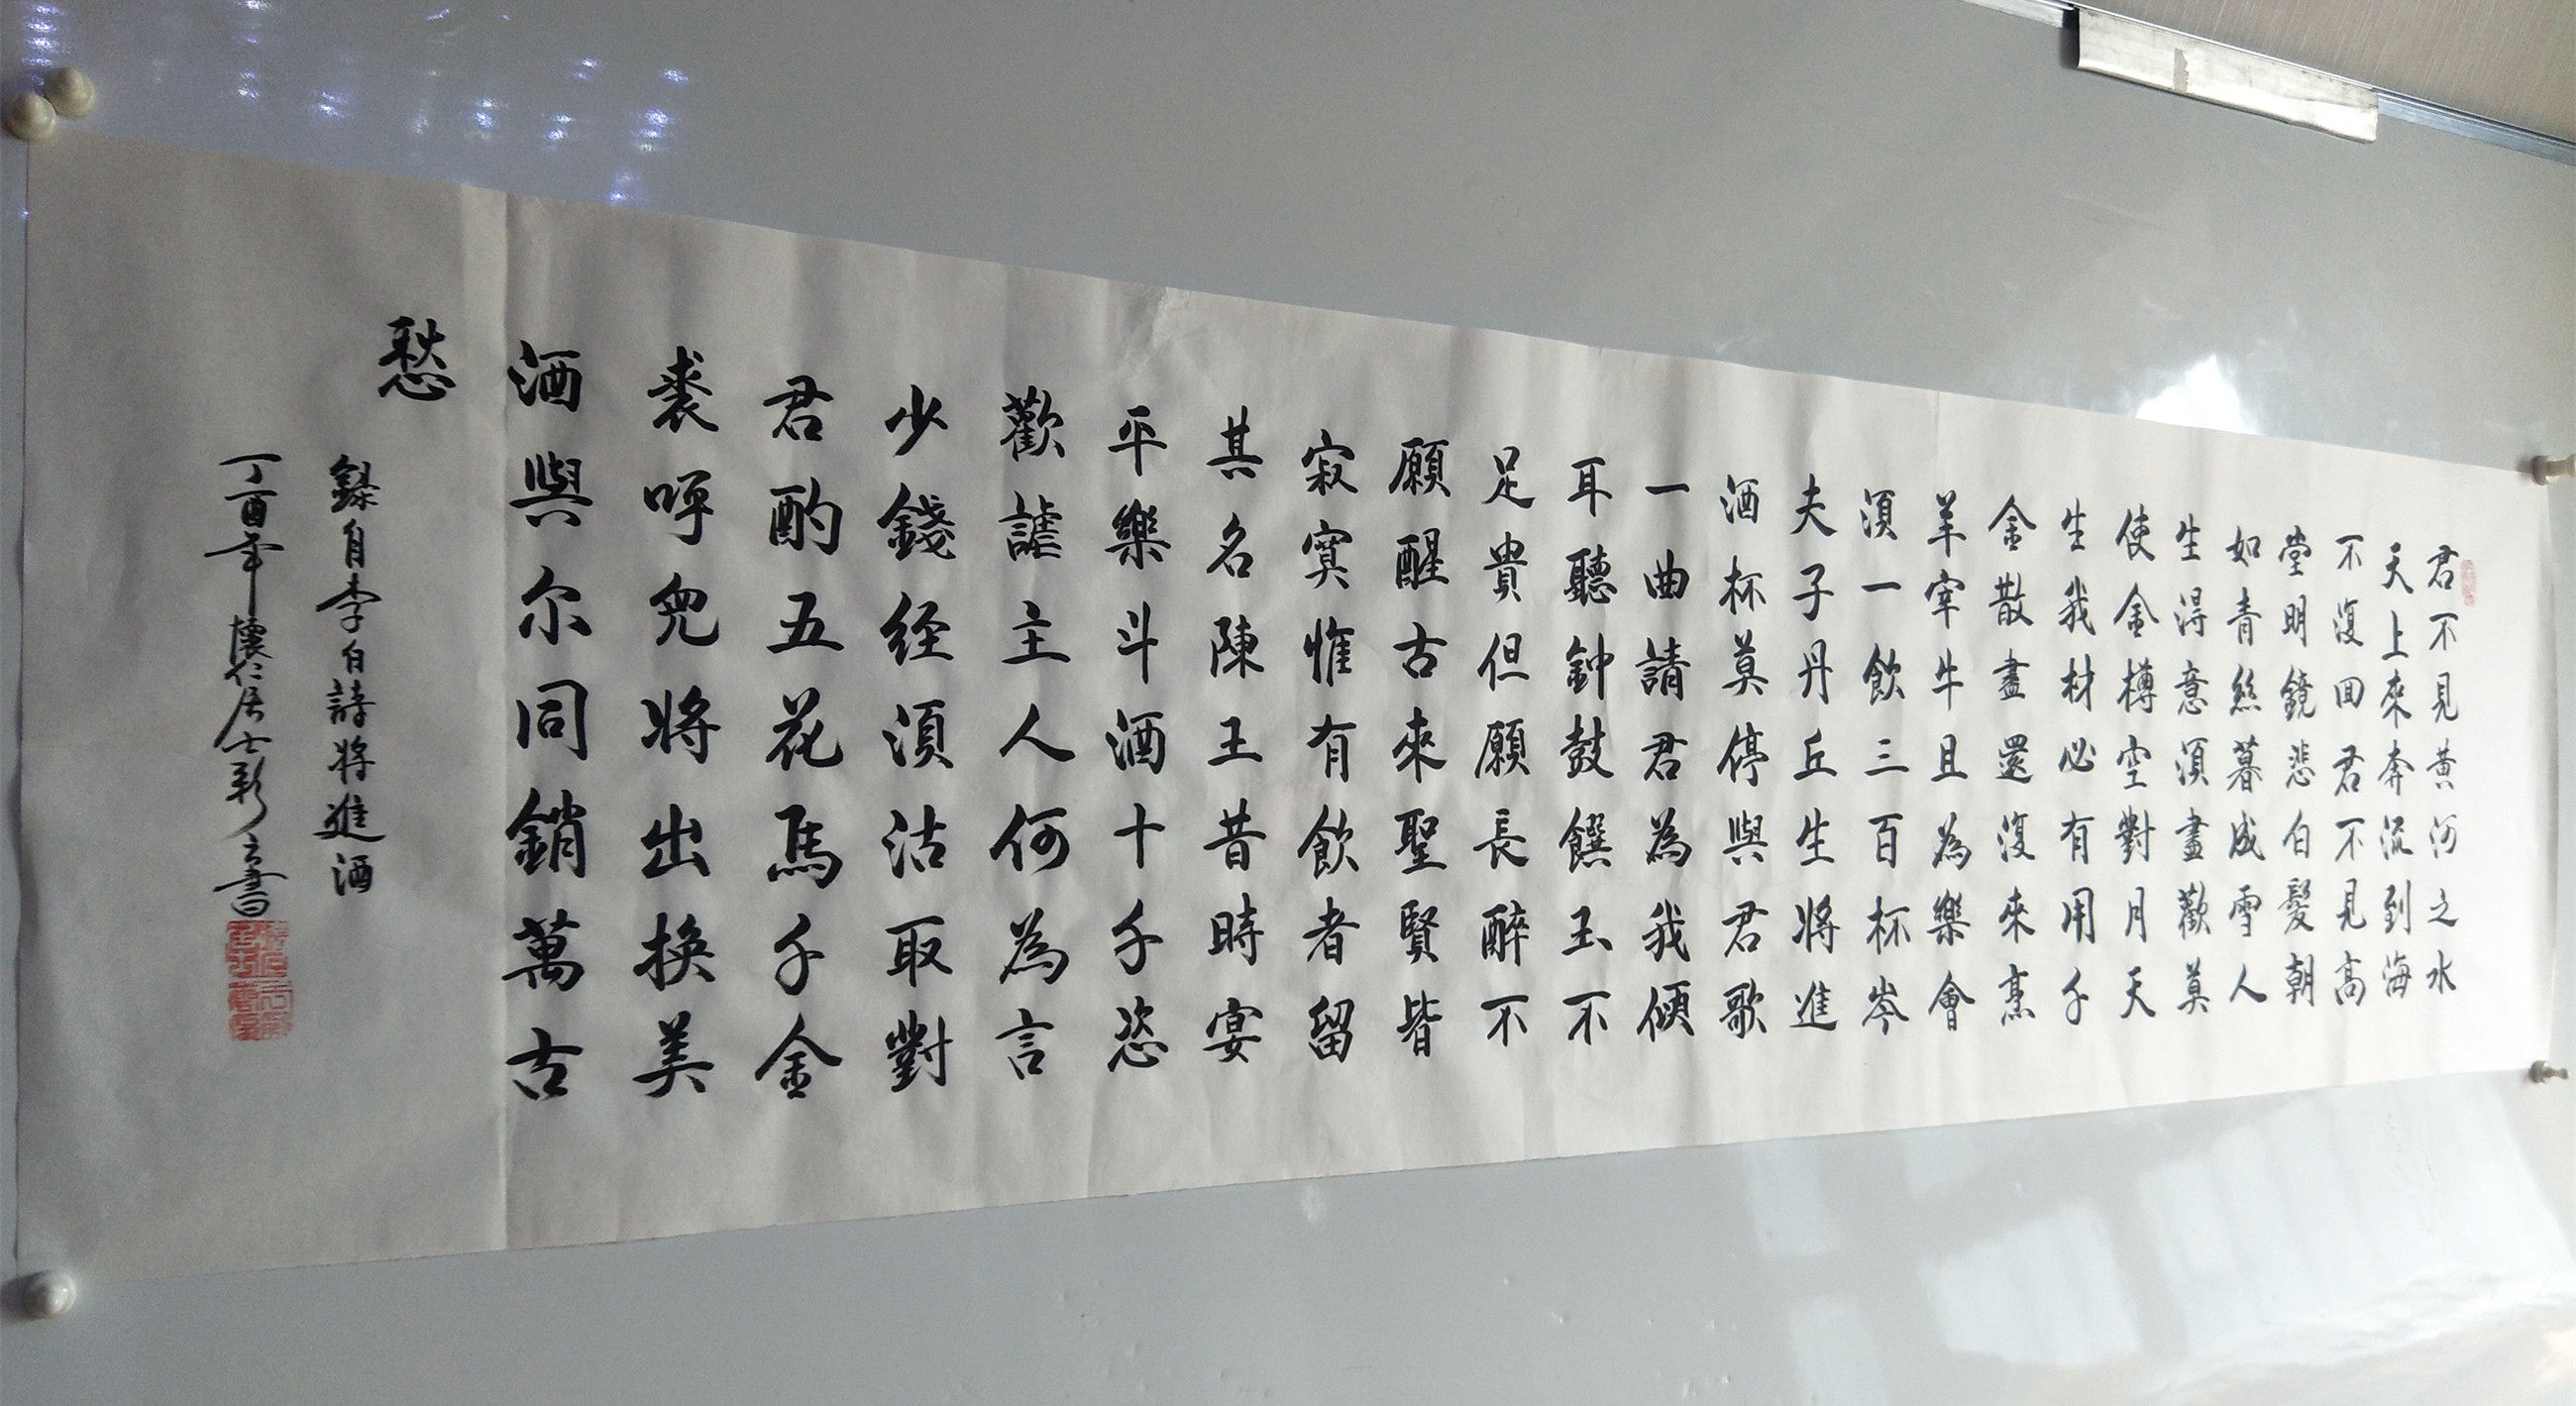 君不見黄河之水
天上來奔流到海
不復回君不見高
堂明鏡悲白髮朝
如青絲暮成雪人
生得意須盡歡莫
使金樽空對月天
生我材必有用千
金散盡還復來烹
羊宰牛且為樂會
須一飲三百杯岑
夫子丹丘生將進
酒杯莫停與君歌
一曲請君為我傾
耳聽鈡鼓饌玉不
足貴但願長醉不
願醒古來聖賢皆
寂寞惟有飲者留
其名陳王昔時宴
平樂斗酒十千恣
歡謔主人何為言
少錢經須沽取對
君酌五花馬千金
裘呼兒將出換美
酒與尔同銷萬古
愁
錄自李白詩將進酒
丁酉年懷仁居士彰之書